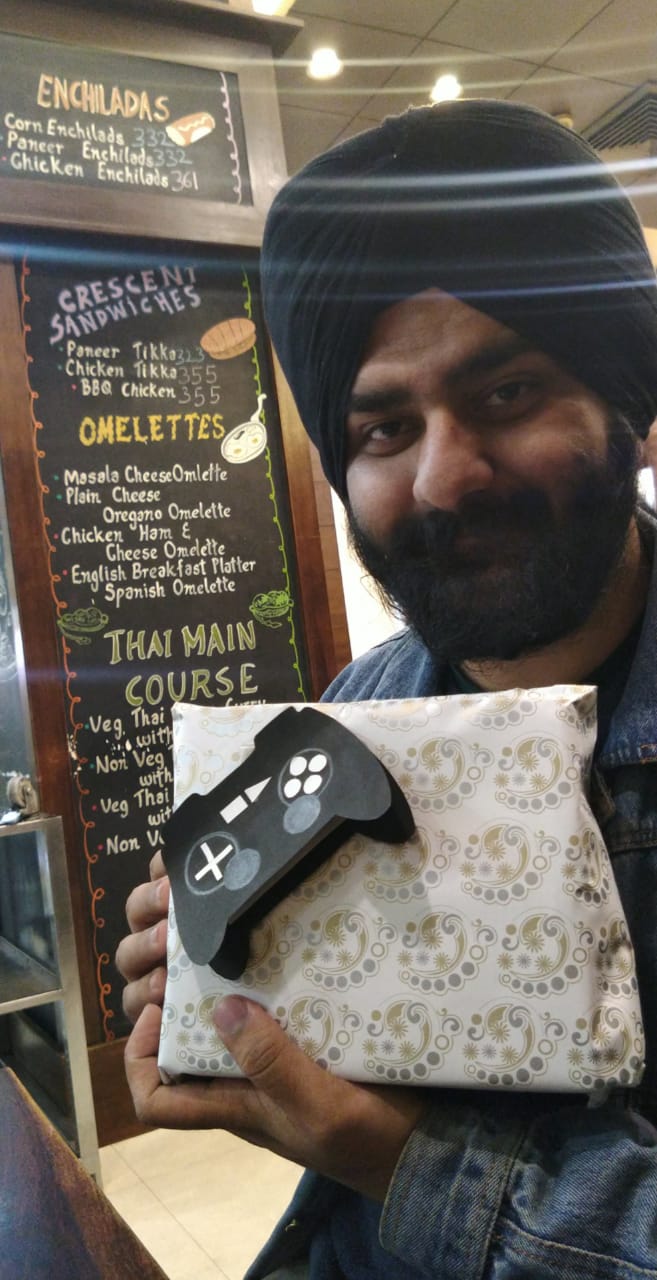 ENCHILADAS
Corn Enchilads 332
Paneer Enchilads 332
Chicken Enchilads 361
CRESCENT
SANDWICHES
Paneer Tikka 323
Chicken Tikka 355
BBQ Chicken 355
OMELETTES
Masala Cheese Omlette
Plain Cheese
Oregano Omelette
Chicken Ham &
Cheese Omelette
English Breakfast Platter
Spanish Omelette
THAI MAIN
COURSE
Veg. Thai Curry
with
Non Veg
with
Veg Thai
wit
Non V